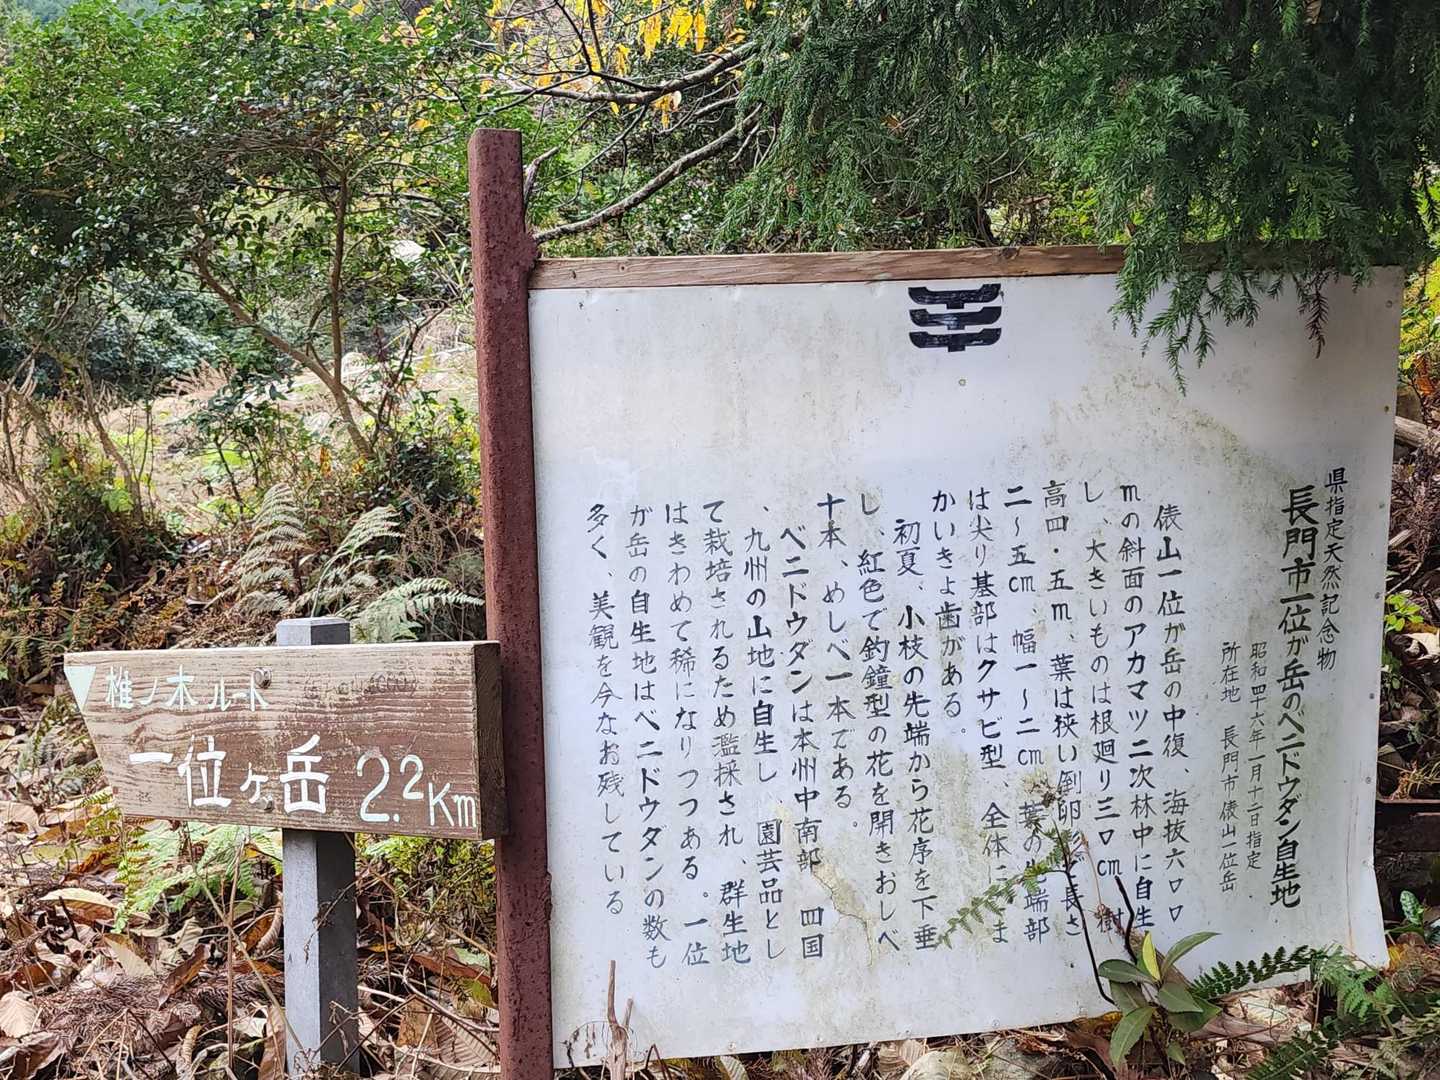 県指定天然記念物
長門市一位が岳のベニドウダン自生地
昭和四十六年一月十二日指定
所在地 長門市俵山一位岳
俵山一位が岳の中復、海抜六ロロ
mの斜面のアカマツ二次林中に自生
し、大きいものは根廻り三ロcm 樹
高四・五m、葉は狭い倒卵形で長さ
二〜五cm、幅一〜二cm 葉の先端部
は尖り基部はクサビ型、全体にこま
かいきょ歯がある。
初夏、小枝の先端から花序を下垂
し、紅色で釣鐘型の花を開きおしべ
十本、めしべ一本である。
ベニドウダンは本州中南部、四国
、九州の山地に自生し、園芸品とし
て栽培されるため濫採され、群生地
はきわめて稀になりつつある。一位
が岳の自生地はベニドウダンの数も
多く、美観を今なお残している
椎ノ木ルート
一位ヶ岳 2.2Km